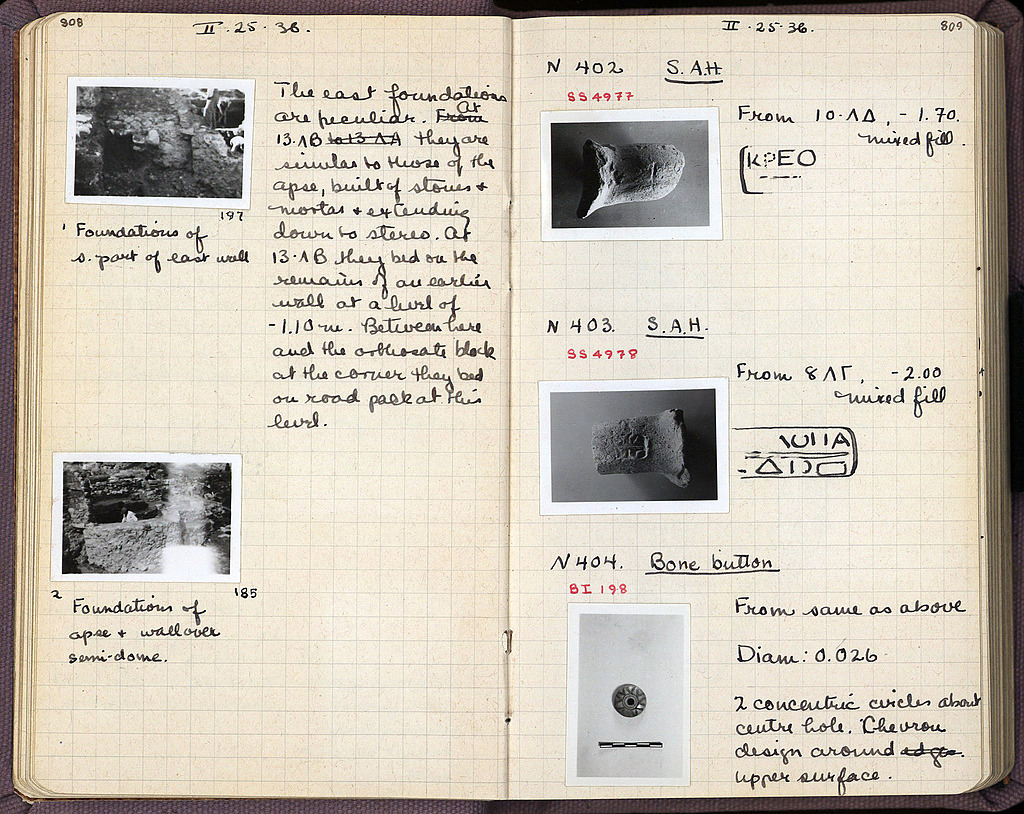 808
II · 25 · 36.
The east foundations
are peculiar. From At
13·ΛB to 13 ΛA they are
similar to those of the
apse, built of stones +
mortar + extending
down to stereo. At
13·ΛB they bed on the
remains of an earlier
wall at a level of
-1.10 m. Between here
and the orthostate block
at the corner they bed
on road pack at this
level.
197
1 Foundations of
s. part of east wall
185
2 Foundations of
apse + wall over
semi-dome.
II · 25 · 36.
809
N 402 S.A.H
SS 4977
From 10·ΛΔ, -1.70.
mixed fill.
ΚΡΕΟ
N 403. S.A.H.
SS 4978
From 8 ΛΓ, -2.00
mixed fill
N 404. Bone button
BI 198
From same as above
Diam: 0.026
2 concentric circles about
centre hole. Chevron
design around edge.
upper surface.